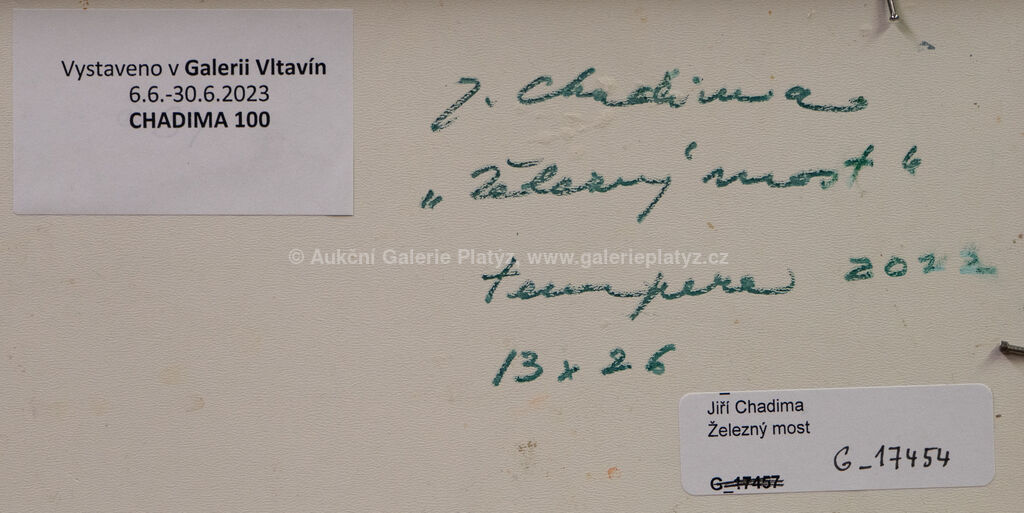 Vystaveno v Galerii Vltavín
6.6.-30.6.2023
CHADIMA 100
J. Chadima
„Železný most“
tempera 2022
13 x 26
© Aukční Galerie Platýz, www.galerieplatyz.cz
Jiří Chadima
Železný most
G_17454
G_17457